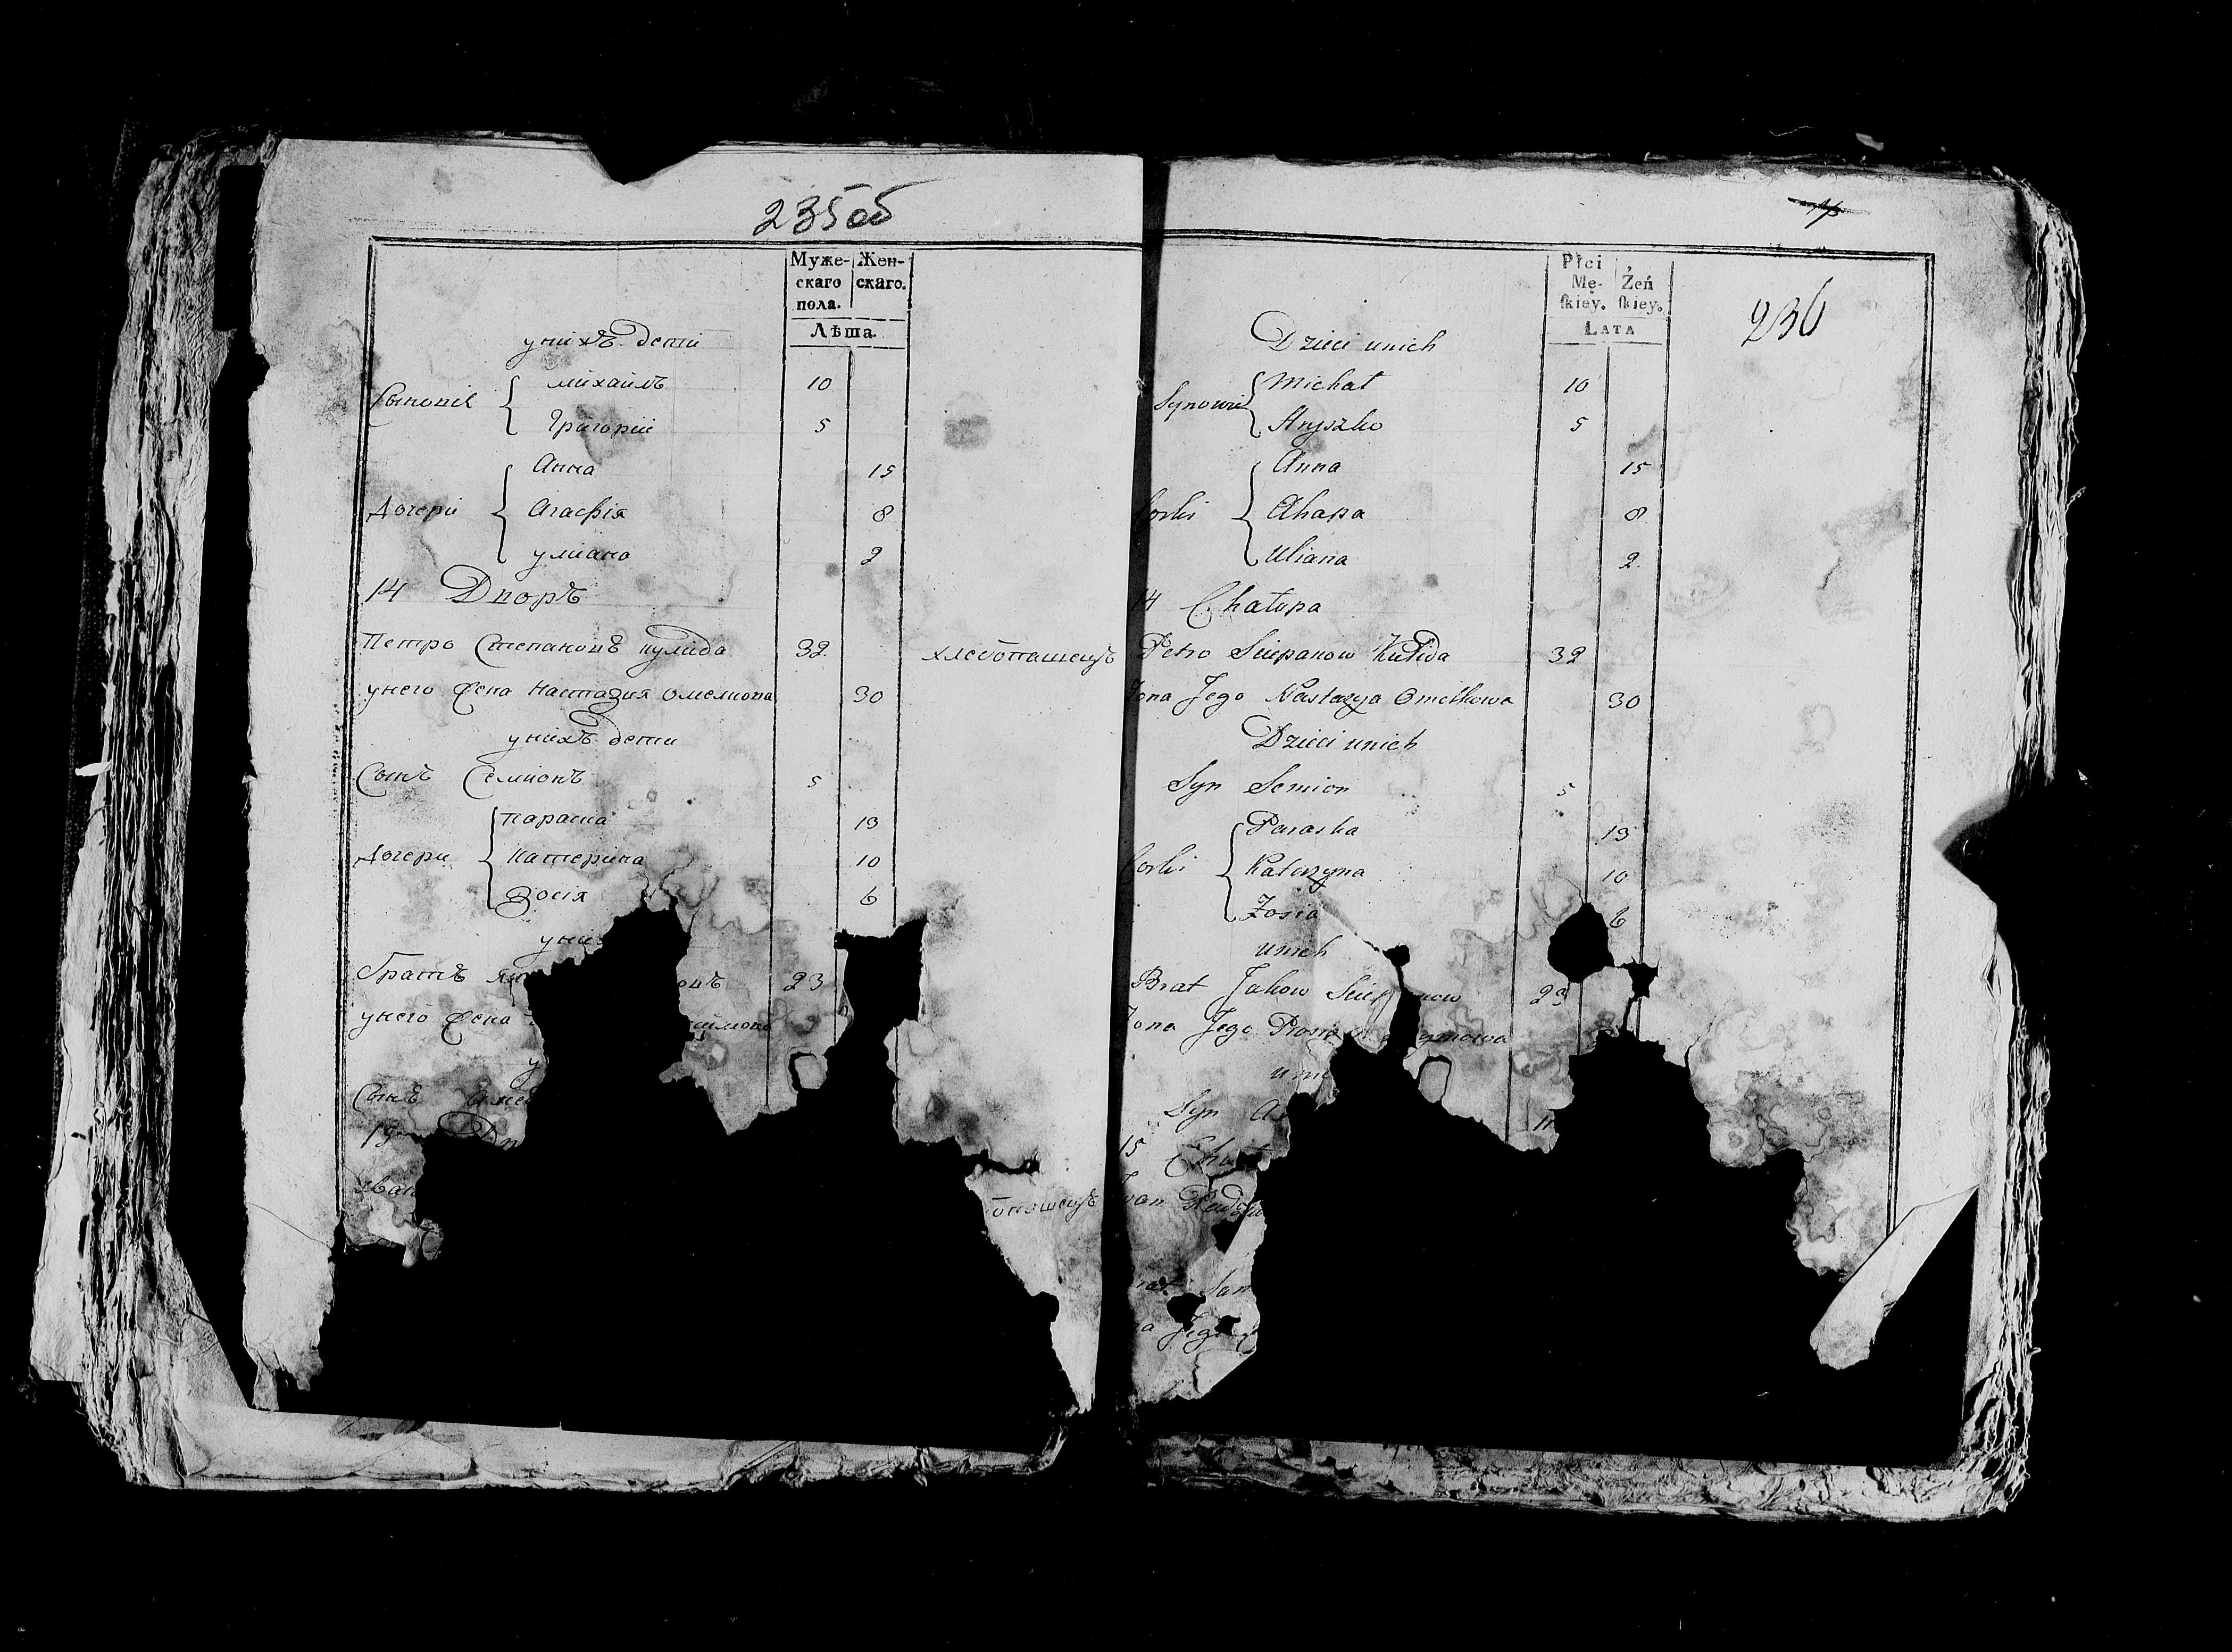 235об
Муже- Жен-
скаго скаго.
пола.
Лѣта.
унихъ дети
Сыновiе
михаилъ 10
Григорiй 5
Дочери
Анна 15
Агафiя 8
улиана 2
14 Дворъ
Петро Степановъ кулида 32 хлебопашецъ
унего жена Настазия омелкова 30
унихъ дети
Сынъ Семионъ 5
Дочери
параска 13
катерина 10
Зосiя 6
уни
братъ 23
унего жена
Сынъ
15
Иван
опашецъ
236
Płci
Mę- Żeń
skiey. skiey.
Lata
Dzieci unich
Synowie
Michał 10
Hryszko 5
Corki
Anna 15
Ahapa 8
Uliana 2.
14 Chatupa
Petro Sciepanow Kulida 32
Zona Jego Nastazya Omelkowa 30
Dzieci unich
Syn Semion 5
Corki
Paraska 13
Katerzyna 10
Zosia 6
unich
Brat Jakow 23
Zona Jego
Syn
15
Jego